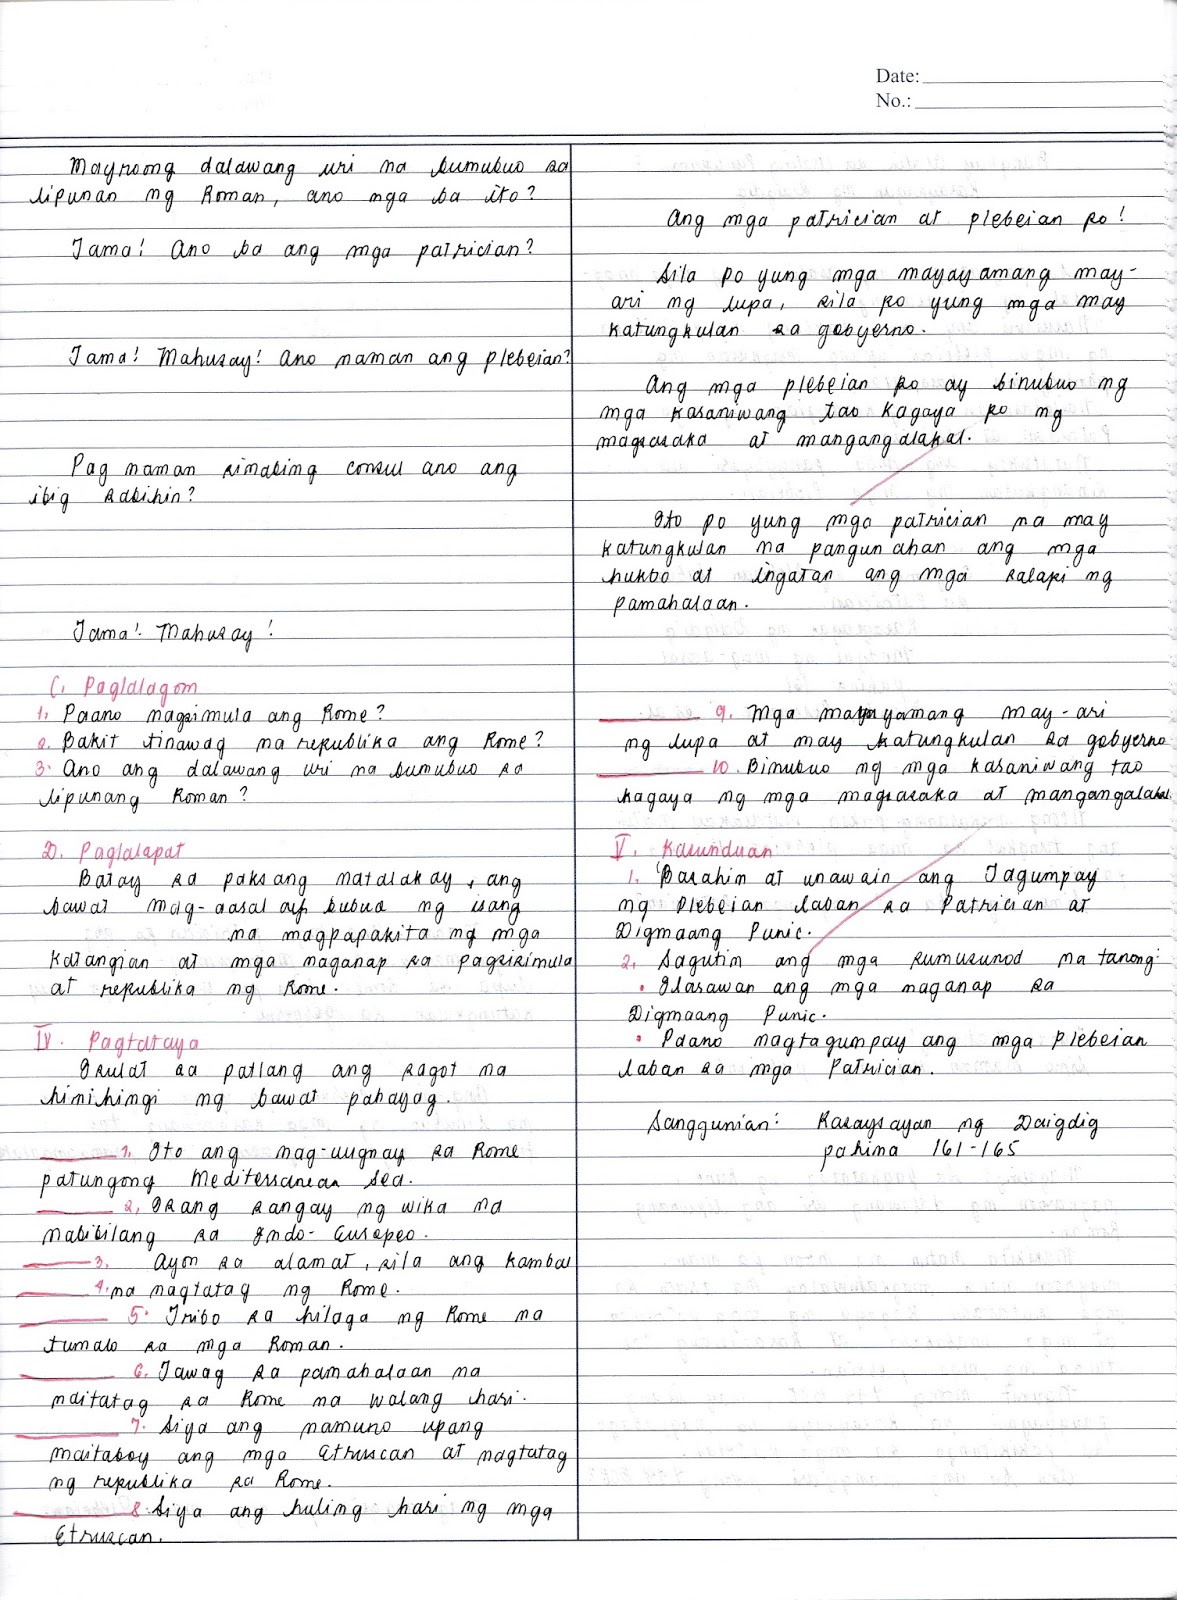 Date:
No.:
Mayroong dalawang uri na bumubuo sa
lipunan ng Roman, ano mga ba ito?
Tama! Ano ba ang mga patrician?
Tama! Mahusay! Ano naman ang plebeian?
Pag naman sinabing consul ano ang
ibig sabihin?
Tama! Mahusay!
C. Paglalagom
1. Paano nagsimula ang Rome?
2. Bakit tinawag na republika ang Rome?
3. Ano ang dalawang uri na bumubuo sa
lipunang Roman?
D. Paglalapat
Batay sa paksang natalakay, ang
bawat mag-aaral ay bubuo ng isang
na magpapakita ng mga
katangian at mga naganap sa pagsisimula
at republika ng Rome.
IV. Pagtataya
Isulat sa patlang ang sagot na
hinihingi ng bawat pahayag.
1. Ito ang nag-uugnay sa Rome
patungong Mediterranean Sea.
2. Isang sangay ng wika na
nabibilang sa Indo-European.
3. Ayon sa alamat, sila ang kambal
4. na nagtatag ng Rome.
5. Tribo sa hilaga ng Rome na
tumalo sa mga Roman.
6. Tawag sa pamahalaan na
naitatag sa Rome na walang hari.
7. Siya ang namuno upang
maitaboy ang mga Etruscan at nagtatag
ng republika sa Rome.
8. Siya ang huling hari ng mga
Etruscan.
Ang mga patrician at plebeian po!
Sila po yung mga mayayamang may-
ari ng lupa, sila po yung mga may
katungkulan sa gobyerno.
Ang mga plebeian po ay binubuo ng
mga kasaniwang tao kagaya po ng
magsasaka at mangangalakal.
Ito po yung mga patrician na may
katungkulan na pangunahan ang mga
hukbo at ingatan ang mga salapi ng
pamahalaan.
9. Mga mayayamang may-ari
ng lupa at may katungkulan sa gobyerno
10. Binubuo ng mga kasaniwang tao
kagaya ng mga magsasaka at mangangalakal.
V. Kasunduan
1. Basahin at unawain ang Tagumpay
ng Plebeian laban sa Patrician at
Digmaang Punic.
2. Sagutin ang mga sumusunod na tanong:
• Ilarawan ang mga naganap sa
Digmaang Punic.
• Paano nagtagumpay ang mga Plebeian
laban sa mga Patrician.
Sanggunian: Kasaysayan ng Daigdig
pahina 161-165